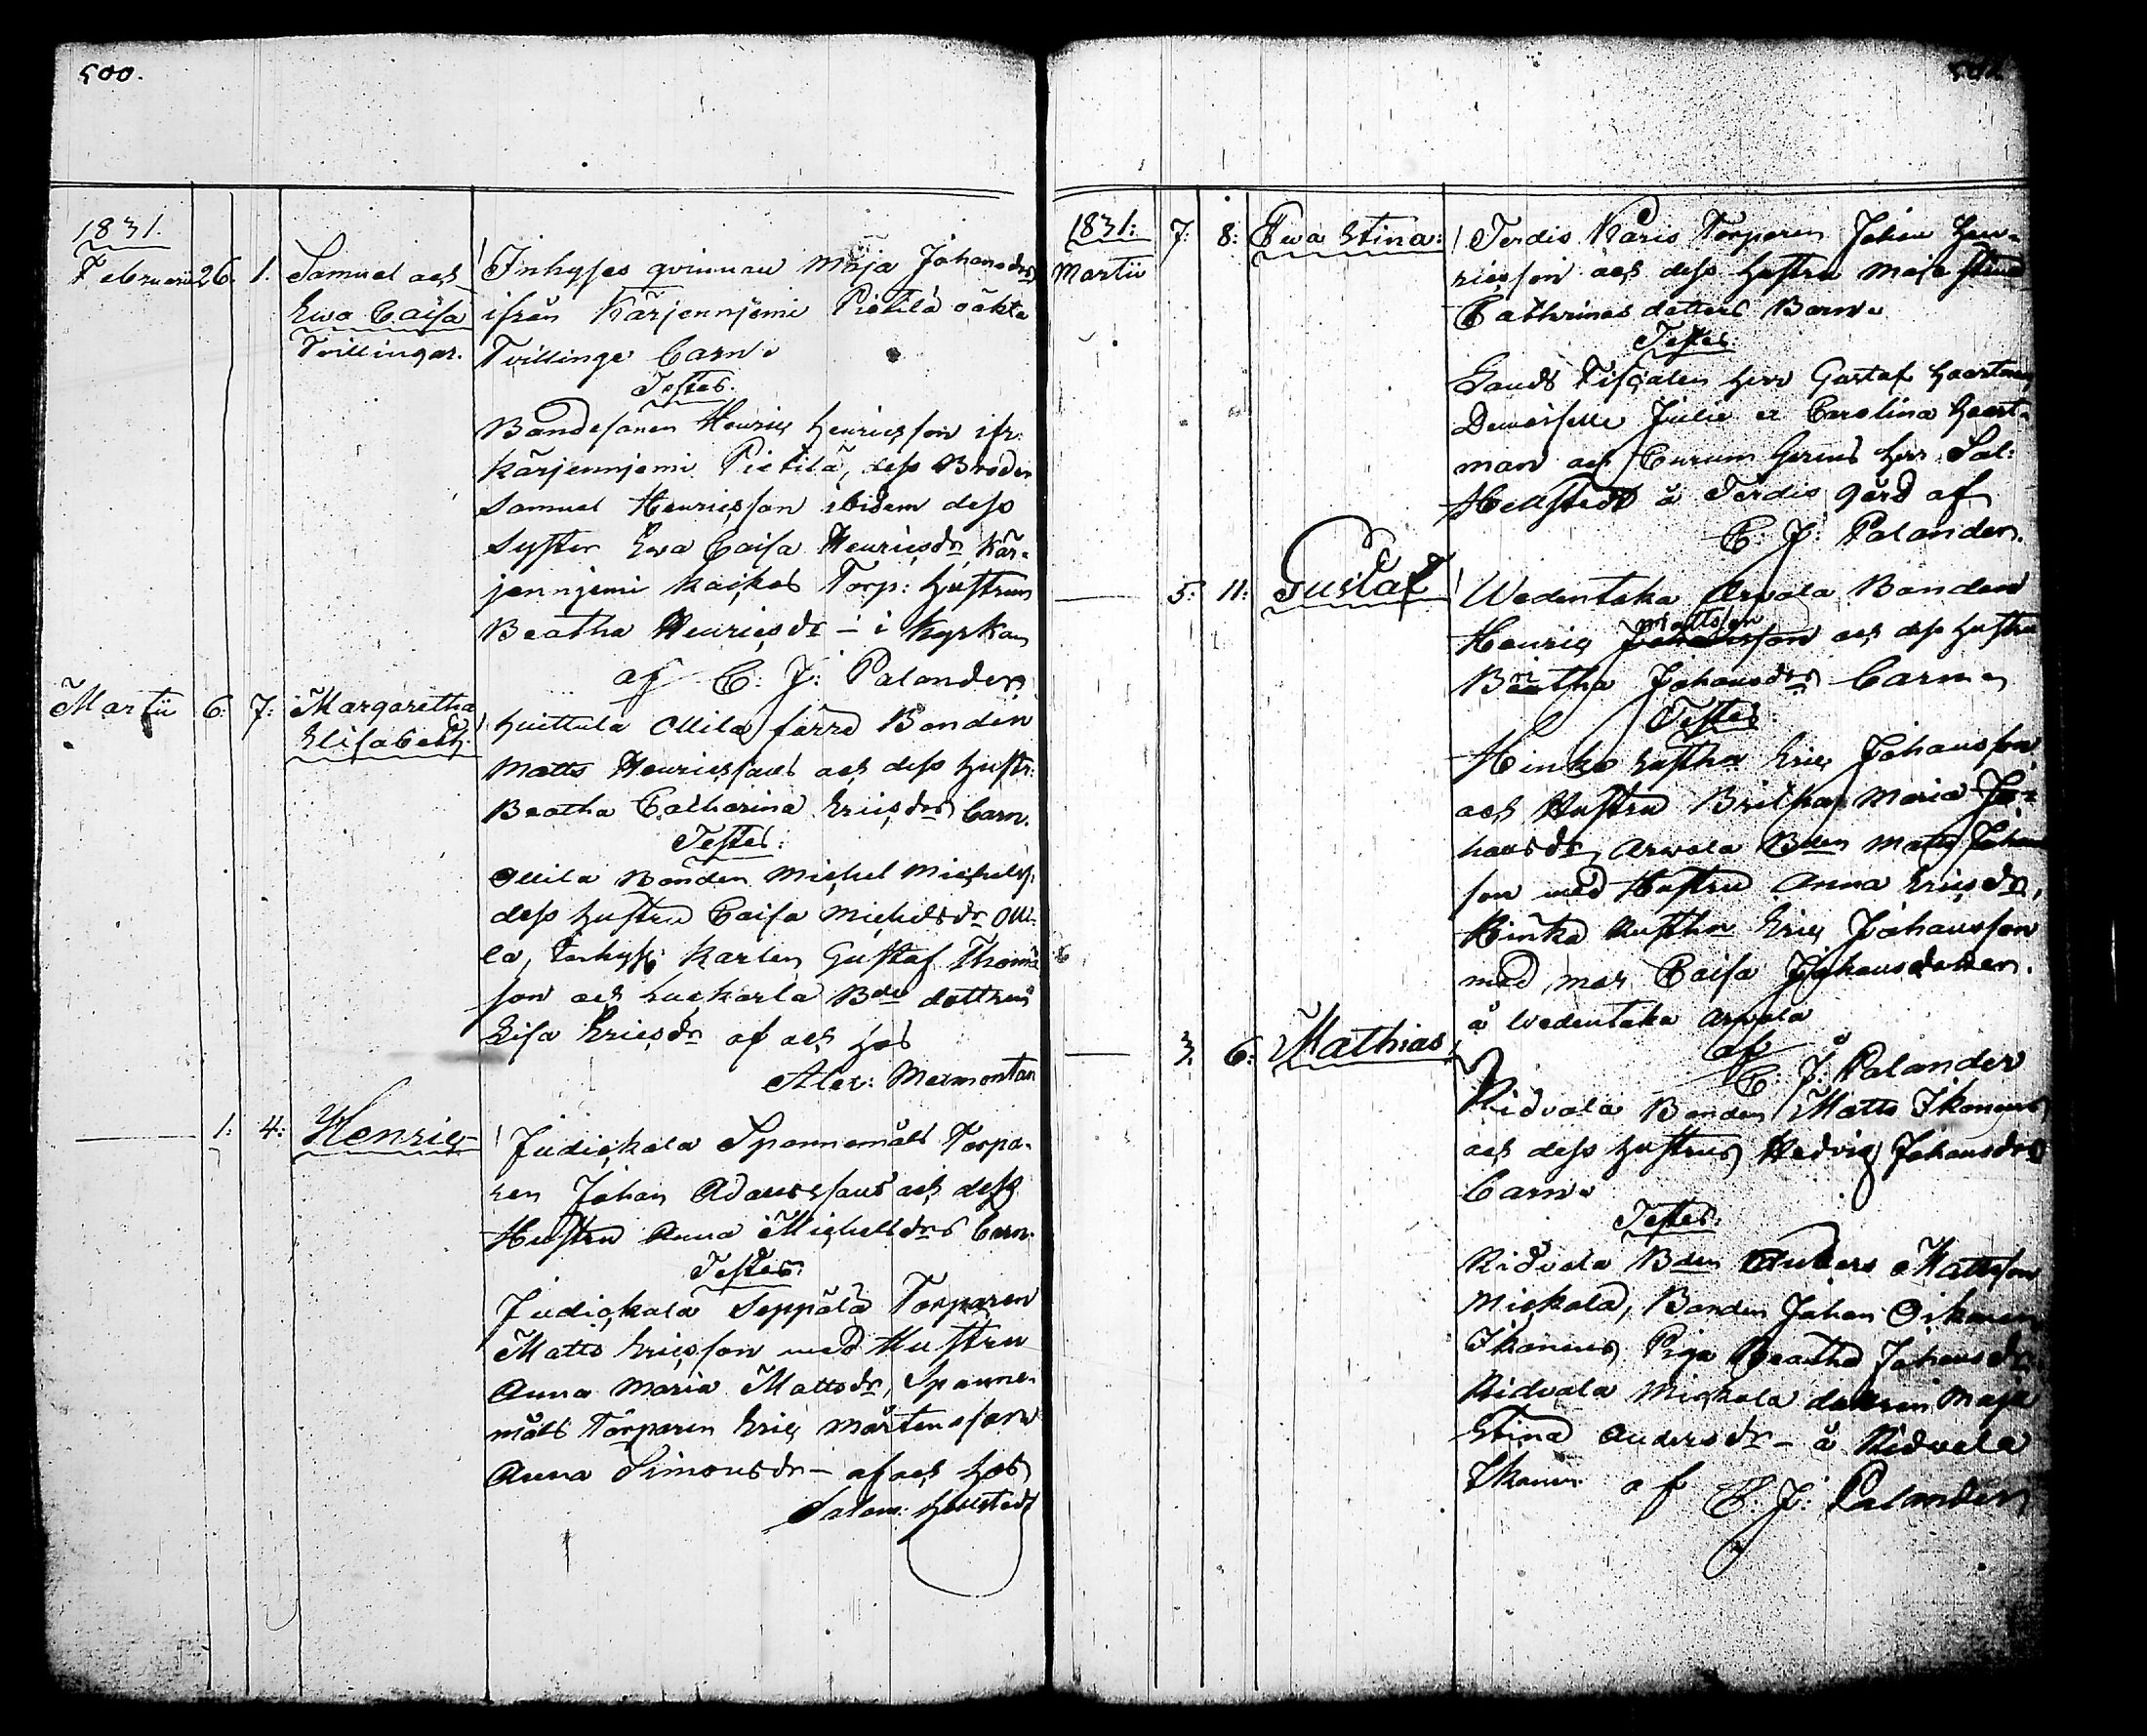 500.
1831.
Februarii 26. 1. Samuel och Inhyses qvinnan Maja Johansdrs
Ewa Caisa ifrån Kärjenniemi Pietilä oäkta
Tvillingar. Tvillinge barn
Testes.
Bondesonen Henric Henricsson ifr:
Kärjenniemi Pietilä, dess Broder
Samuel Henricsson ibidem dess
Syster Ewa Caisa Henricsdr, Kär-
jenniemi Torp: Hustrun
Beatha Henricsdr - i Kyrkan
af C: J: Palander
Martii 6: 7: Margaretha Huittula Ollila förre Bonden
Elisabeth. Matts Henricssons och dess Hustr:
Beatha Catharina Ericsdrs barn.
Testes:
Ollila Bonden Michel Michelss:
dess Hustru Caisa Michelsdr Olli-
la, Inhyss Karlen Gustaf Thom
son och Bde dottren
Lisa Ericsdr af och hos
Alex: Mermontan
1: 4: Henric Judickala Spannemåls Torpa-
ren Johan Adamssons och dess
Hustru Anna Michelsdrs barn.
Testes:
Judickala Seppälä Torparen
Matts Ericsson med Hustru
Anna Maria Mattsdr, Spanne-
måls Torparen Eric Mårtensson
Anna Simonsdr - af och hos
Salom: Hellstedt
1831: 7: 8: Ewa Stina: Terdis Karis Torparen Johan Hen-
Martii ricsson och dess Hustru Maja Stina
Cathrinas dotters Barn
Testes:
Lands Fiscalen Herr Gustaf Haartman
Demoiselle Julie et Carolina Haart-
man och Curam Gerens Herr Sal:
Hellstedt å Terdis gård af
C: J: Palander.
5: 11: Gustaf Wedentaka Arvola Bonden
Mattsson
Henric Johansson och dess Hustru
Britha Johansdrs Barn
Testes:
Eric Johansson
och Hustru Maria Jo-
hansdr, Arvola Bden Matts Johans
son med Hustru Anna Ericsdr,
Eric Johansson
med mor Caisa Johansdotter.
å Wedentaka Arvola
af
C: J: Palander
3. 6: Mathias Ridvala Bonden Matts Ikonens
och dess Hustrus Hedvig Johansdrs
barn
Testes:
Ridvala Bden Anders Mattsson
Mickola, Bonden Johan
Ikonens Piga Beatha Johansdr.
Ridvala Mickola dottren Maja
Stina Andersdr - å Ridvala
Ikonen af C: J: Palander